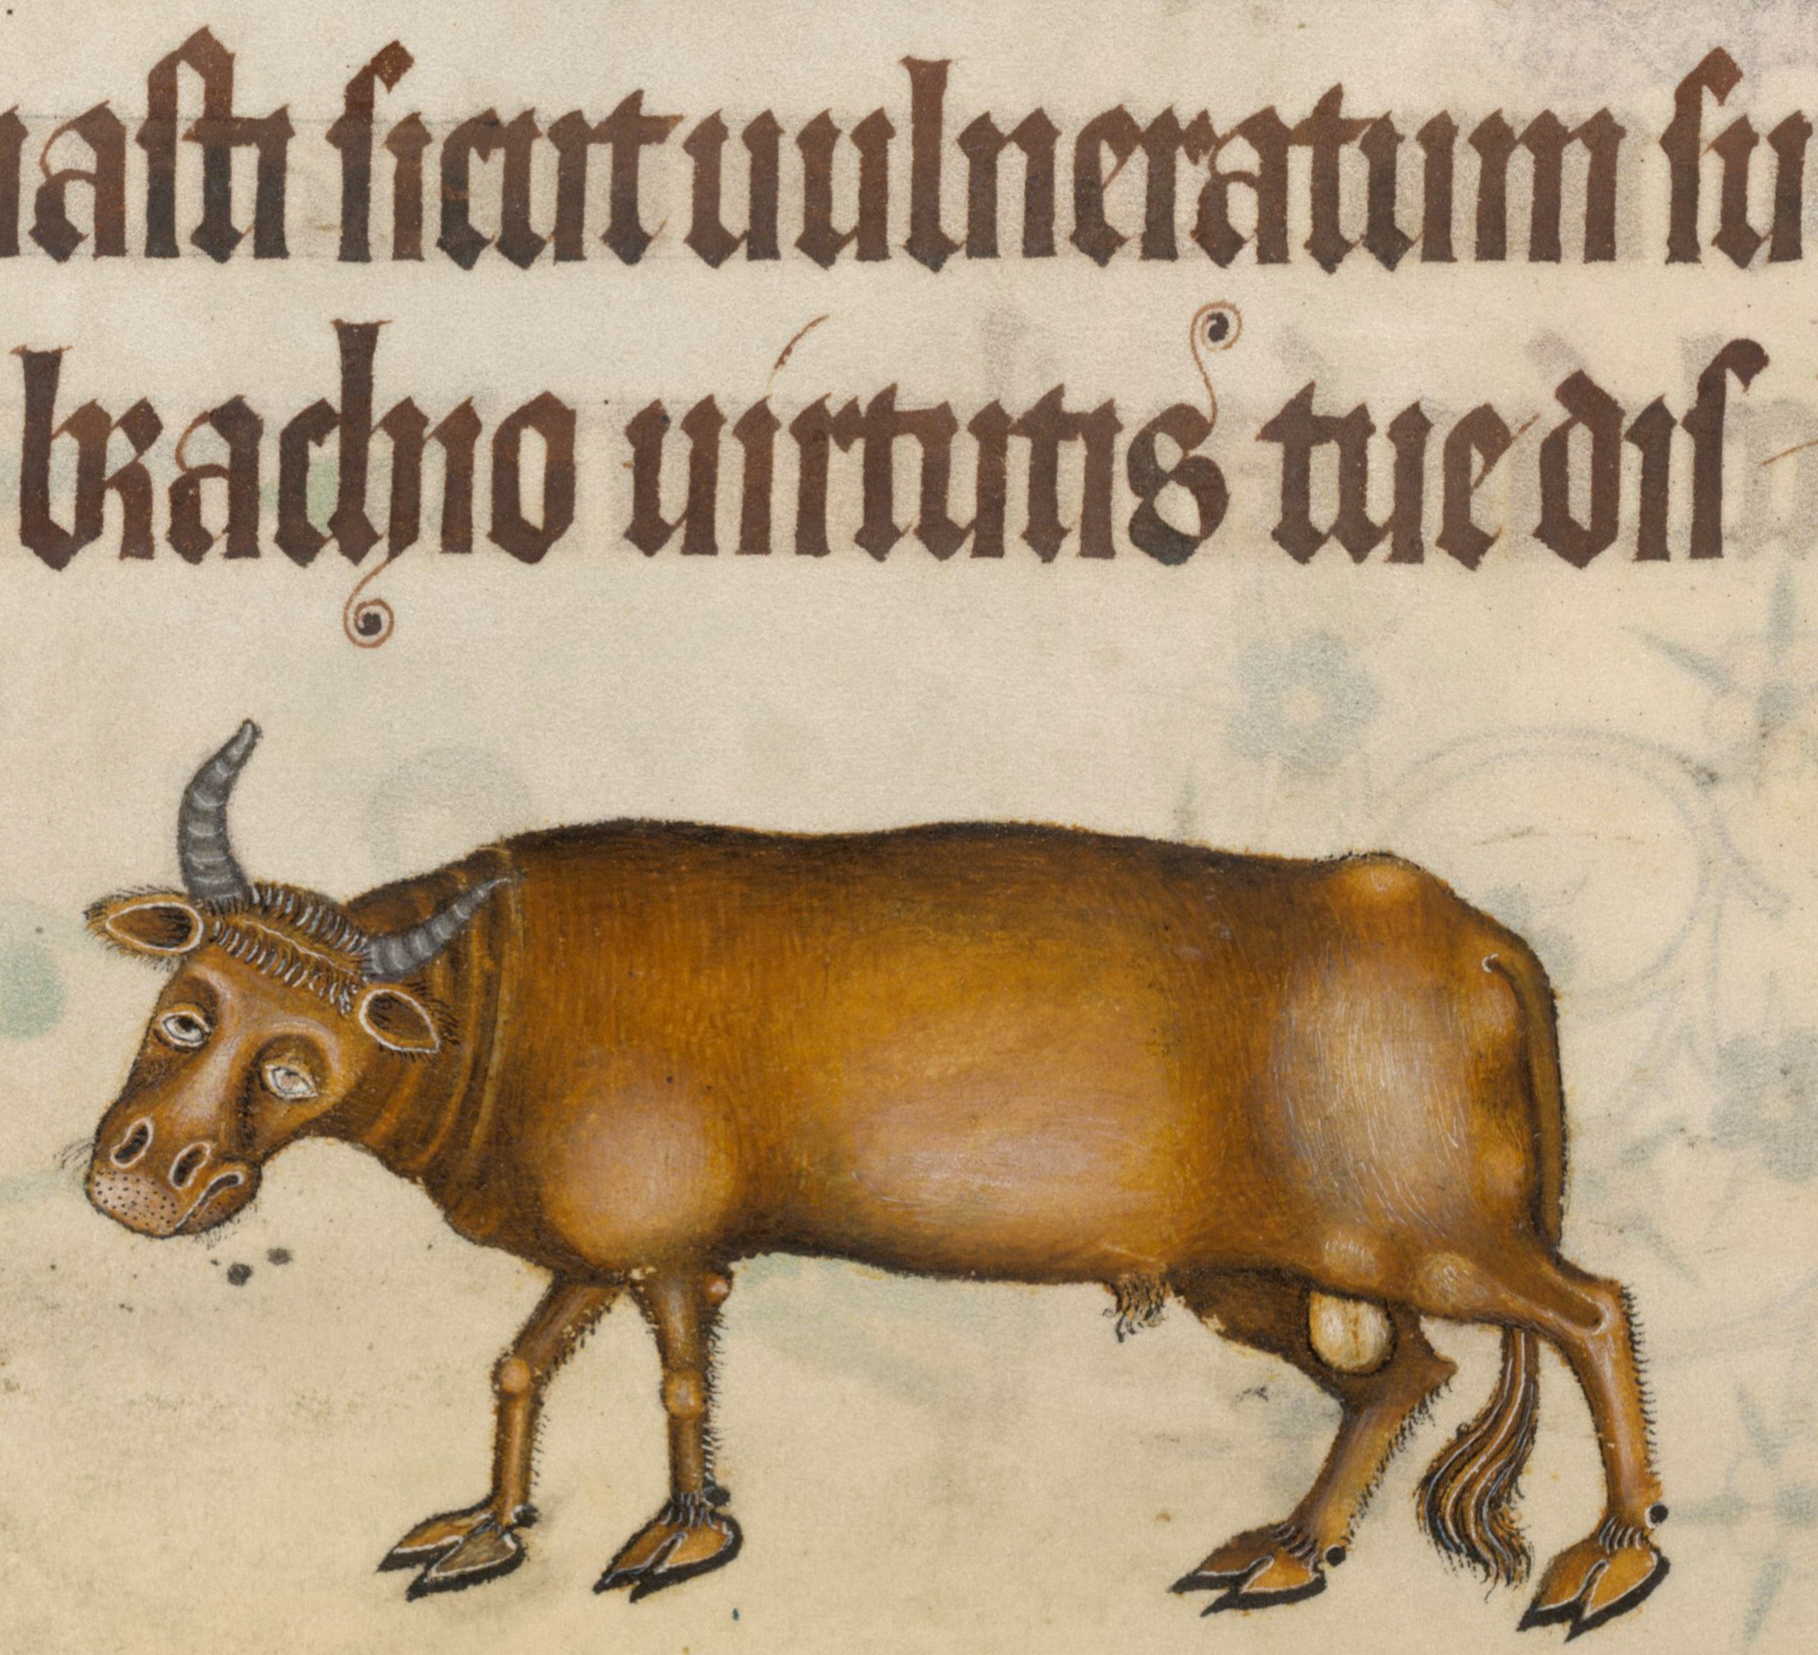 iasti sicut uulneratum su
brachio uirtutis tue dis